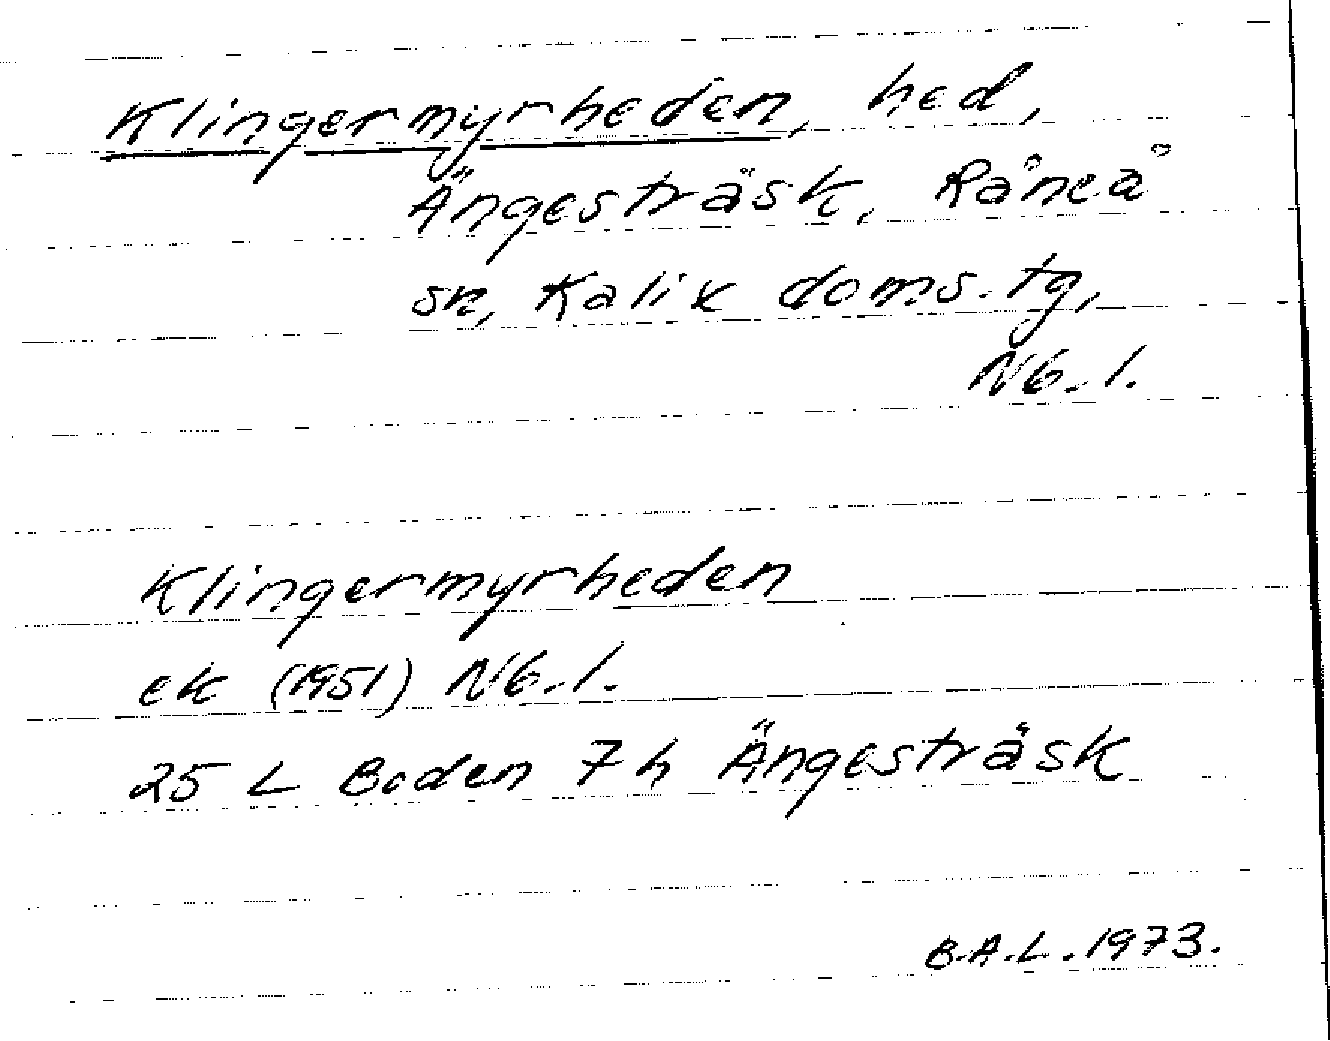 Klingermyrheden, hed,
Ängesträsk, Råneå
sn, Kalix doms. tg,
Nb. l.
Klingermyrheden
ek (1951) Nb. l.
25 L Boden 7 h Ängesträsk
B.A.L. 1973.